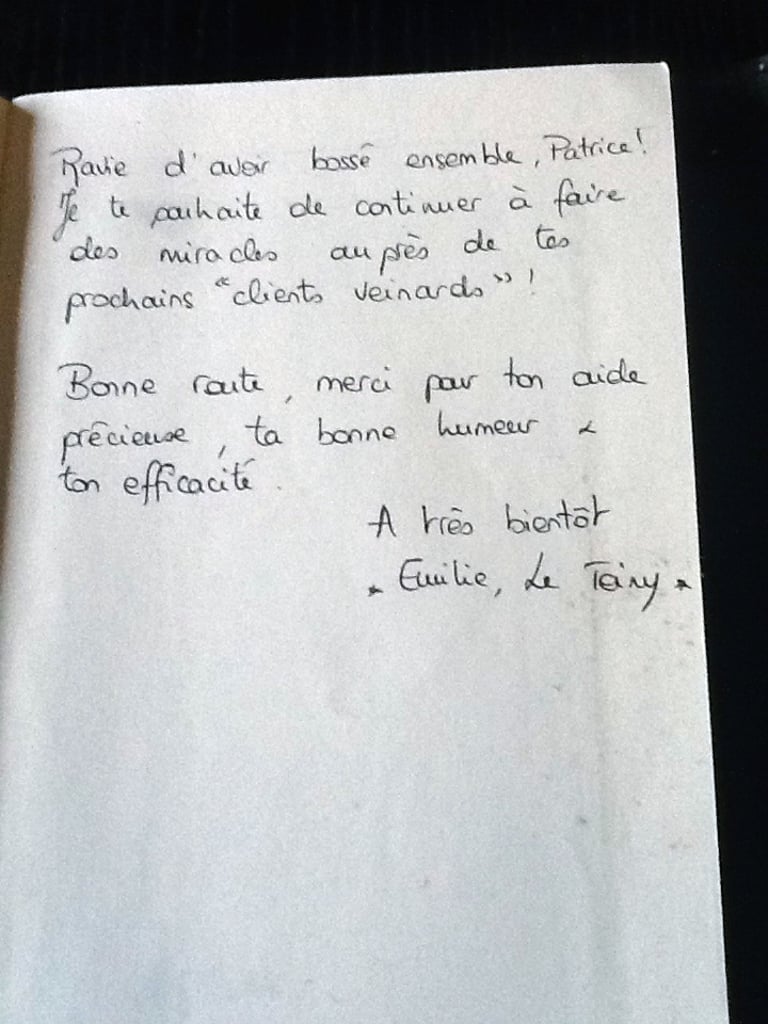 Ravie d'avoir bossé ensemble, Patrice!
Je te souhaite de continuer à faire
des miracles auprès de tes
prochains "clients veinards" !
Bonne route, merci pour ton aide
précieuse, ta bonne humeur &
ton efficacité.
A très bientôt
Emilie, Le